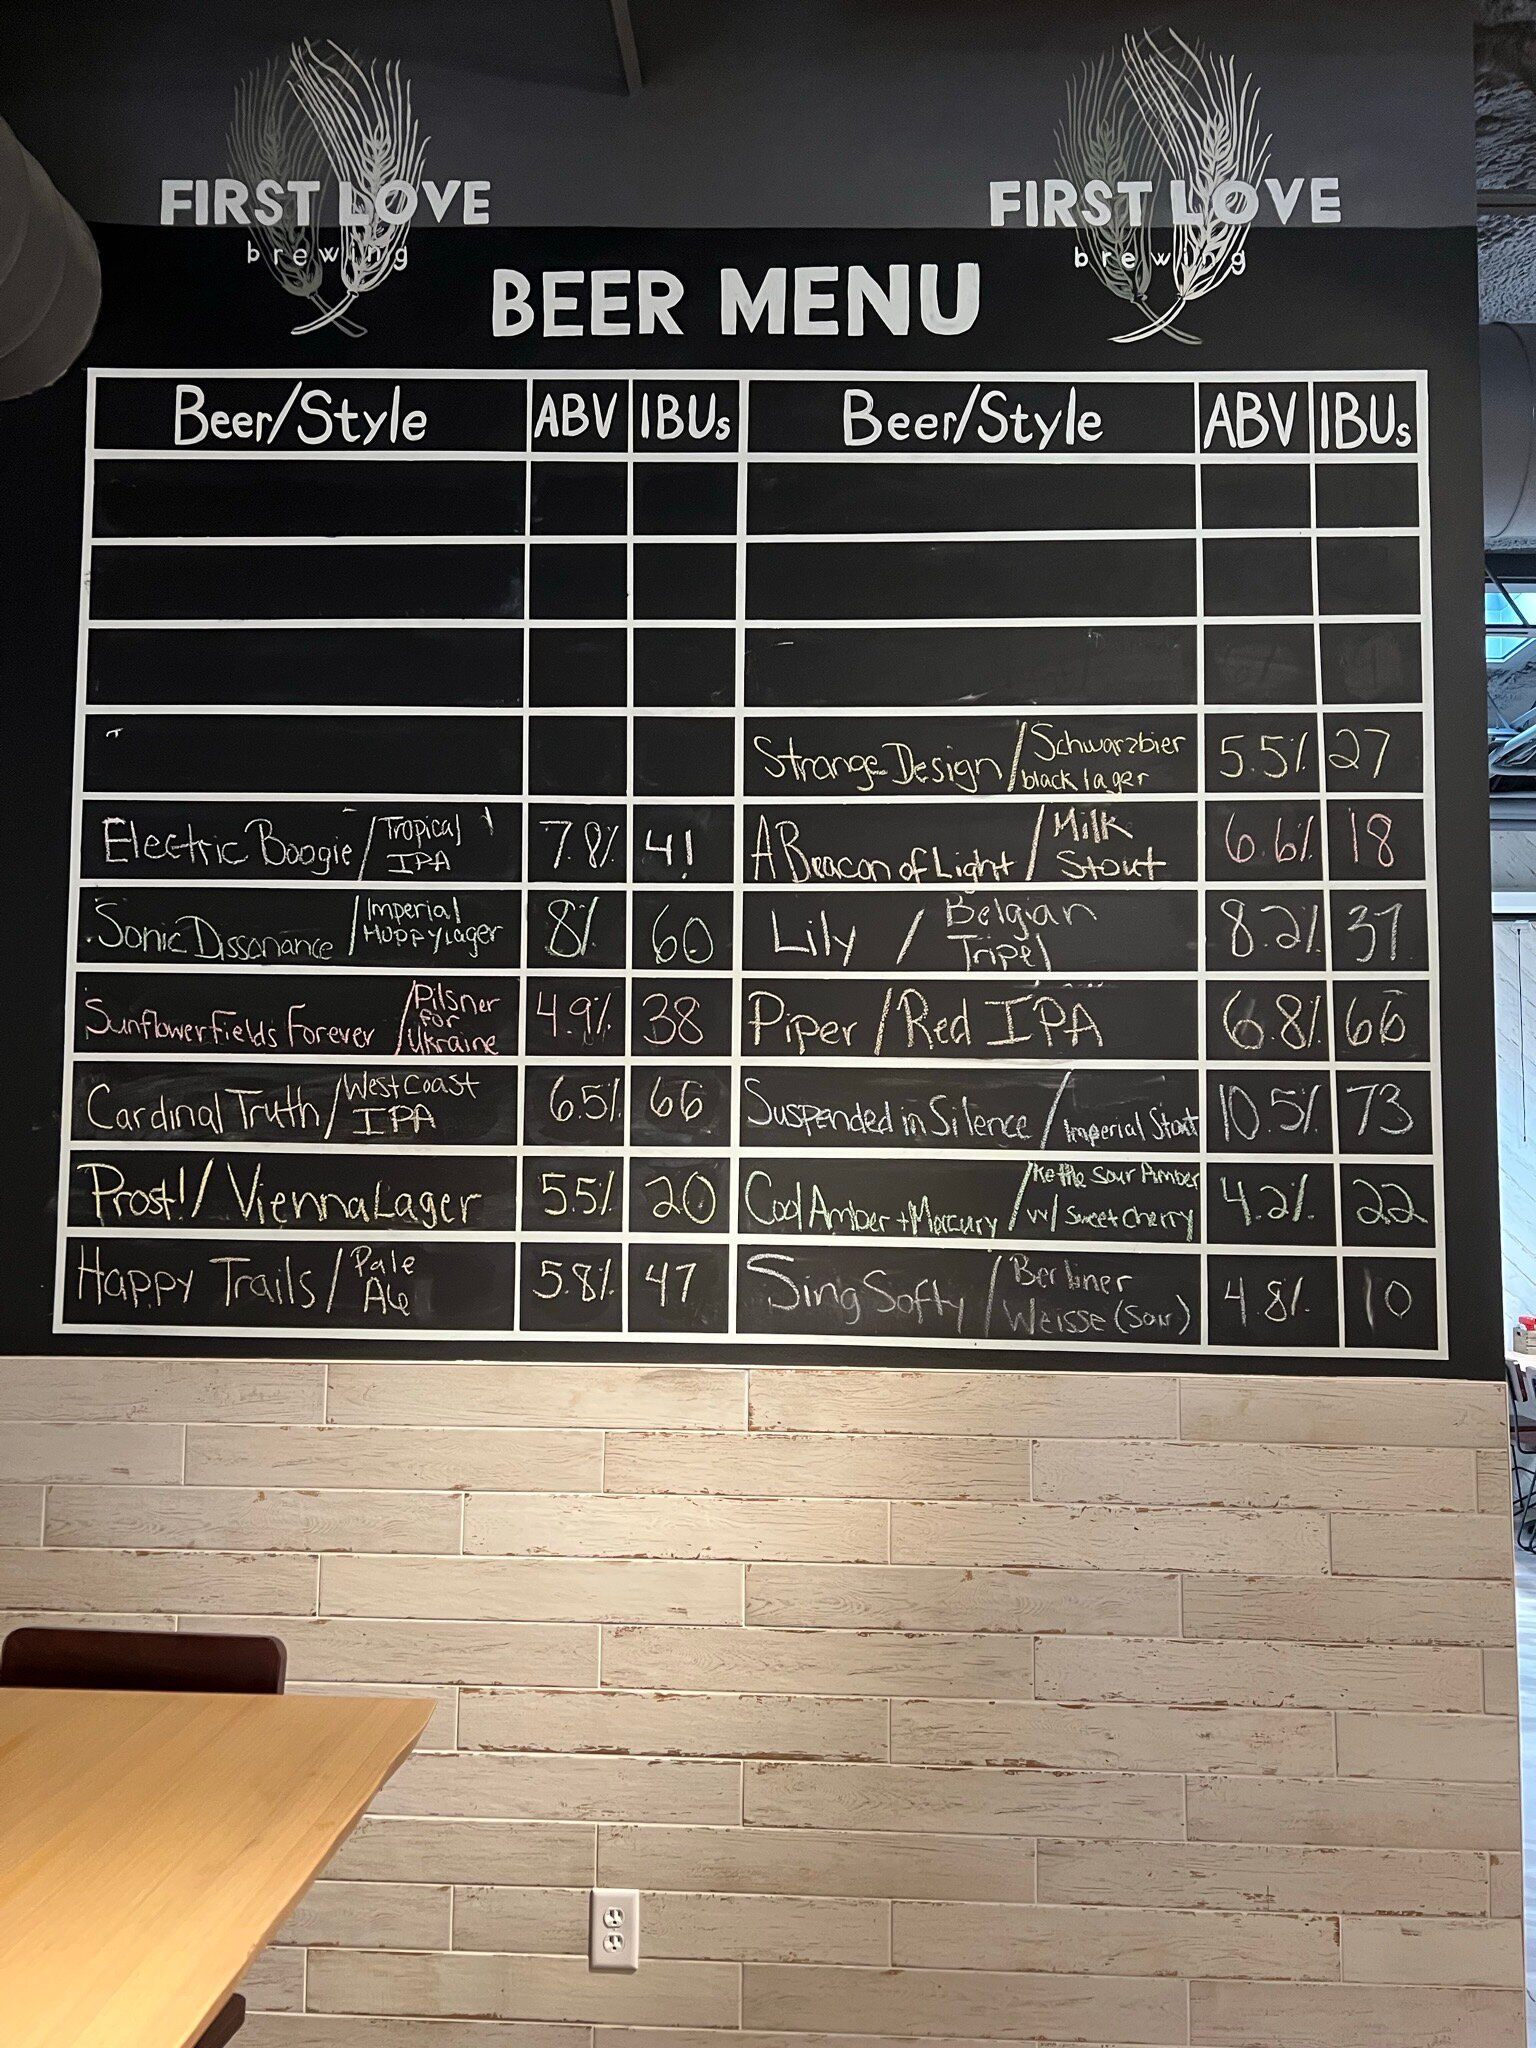 FIRST LOVE
brewing
FIRST LOVE
brewing
BEER MENU
Beer/Style ABV IBUs
Electric Boogie / Tropical IPA 7.8% 41
Sonic Dissonance / Imperial Hoppy Lager 8% 60
Sunflower Fields Forever / Pilsner for Ukraine 4.9% 38
Cardinal Truth / West Coast IPA 6.5% 66
Prost! / Vienna Lager 5.5% 20
Happy Trails / Pale Ale 5.8% 47
Beer/Style ABV IBUs
Strange Design / Schwarzbier black lager 5.5% 27
A Beacon of Light / Milk Stout 6.6% 18
Lily / Belgian Tripel 8.2% 31
Piper / Red IPA 6.8% 66
Suspended in Silence / Imperial Stout 10.5% 73
Cool Amber + Mercury / Kettle Sour Amber w/ Sweet Cherry 4.2% 22
Sing Softy / Berliner Weisse (Sour) 4.8% 10